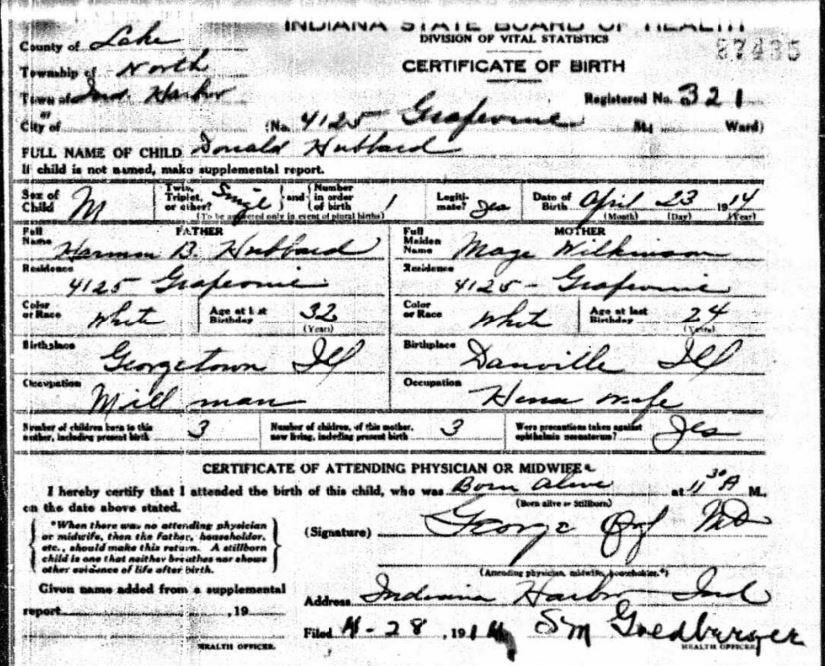 INDIANA STATE BOARD OF HEALTH
DIVISION OF VITAL STATISTICS
87435
CERTIFICATE OF BIRTH
County of Lake
Township of North
Town of Ind. Harbor
Registered No. 321
or
City of (No. 4125 Grapevine Ward)
FULL NAME OF CHILD Donald Hubbard
If child is not named, make supplemental report.
Sex of Child M
Twin, Triplet, or other? Single and Number in order of birth 1
(To be answered only in event of plural births)
Legitimate? Yes
Date of Birth April 23 1914
(Month) (Day) (Year)
FATHER
Full Name Harmon B. Hubbard
MOTHER
Full Maiden Name Mage Wilkinson
Residence 4125 Grapevine
Residence 4125 - Grapevine
Color or Race White
Age at last Birthday 32
(Years)
Color or Race White
Age at last Birthday 24
(Years)
Birthplace Georgetown Ill
Birthplace Danville Ill
Occupation Mill man
Occupation House wife
Number of children born to this mother, including present birth 3
Number of children, of this mother, now living, including present birth 3
Were precautions taken against ophthalmia neonatorum? Yes
CERTIFICATE OF ATTENDING PHYSICIAN OR MIDWIFE
I hereby certify that I attended the birth of this child, who was Born Alive at 11 30 A M.
(Born alive or Stillborn)
on the date above stated.
*When there was no attending physician
or midwife, then the father, householder,
etc., should make this return. A stillborn
child is one that neither breathes nor shows
other evidence of life after birth.
(Signature) George MD
(Attending physician, midwife, householder.*)
Given name added from a supplemental
report , 19
HEALTH OFFICER.
Address Indiana Harbor Ind
Filed 4-28, 1914 SM Goedburger
HEALTH OFFICER.